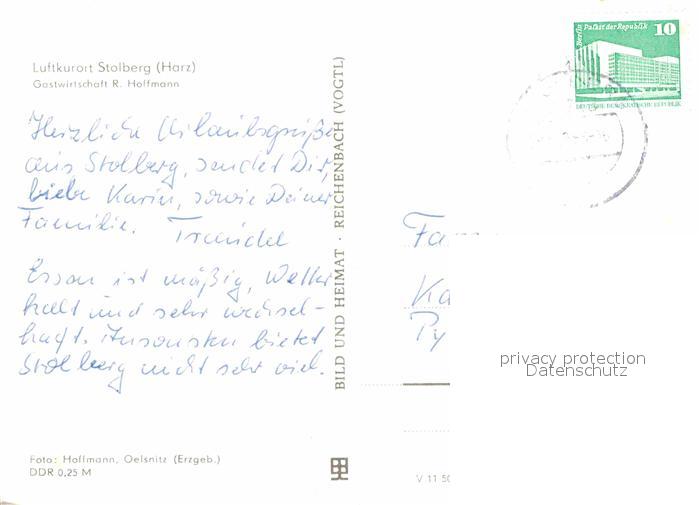 Luftkurort Stolberg (Harz)
Gastwirtschaft R. Hoffmann
Herzliche Urlaubsgrüße
aus Stolberg, sendet Dir,
liebe Karin, sowie Deiner
Familie. Traudel
Essen ist mäßig, Wetter
kalt und sehr wechsel-
haft. Ansonsten bietet
Stolberg nicht sehr viel.
Foto: Hoffmann, Oelsnitz (Erzgeb.)
DDR 0,25 M
BILD UND HEIMAT · REICHENBACH (VOGTL)
Berlin Palast der Republik 10
DEUTSCHE DEMOKRATISCHE REPUBLIK
Fa
Ka
Py
privacy protection
Datenschutz
V 11 50